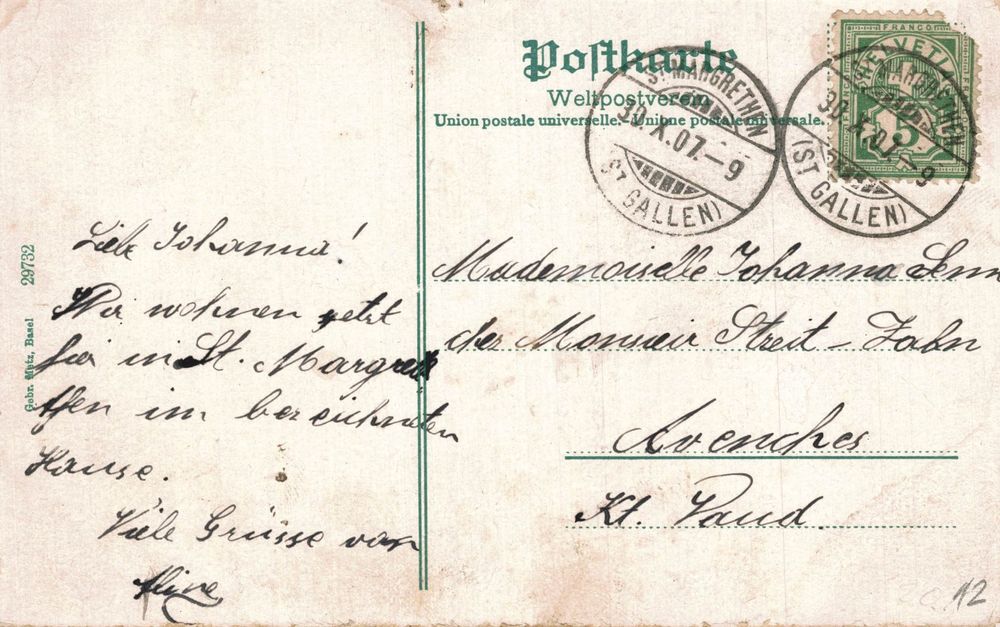 Postkarte
Weltpostverein
Union postale universelle. - Unione postale universale.
FRANCO
HELVETIA
5
ST MARGRETHEN
30.X.07.-9
(ST GALLEN)
ST MARGRETHEN
30.X.07.-9
(ST GALLEN)
Gebr. Metz, Basel 29732
Liebe Johanna!
Wir wohnen jetzt
hier in St. Margre
then im bezeichneten
Hause.
Viele Grüsse von
Aline
Mademoiselle Johanna Senn
chez Monsieur Streit - Jahn
Avenches
Kt. Vaud.
12